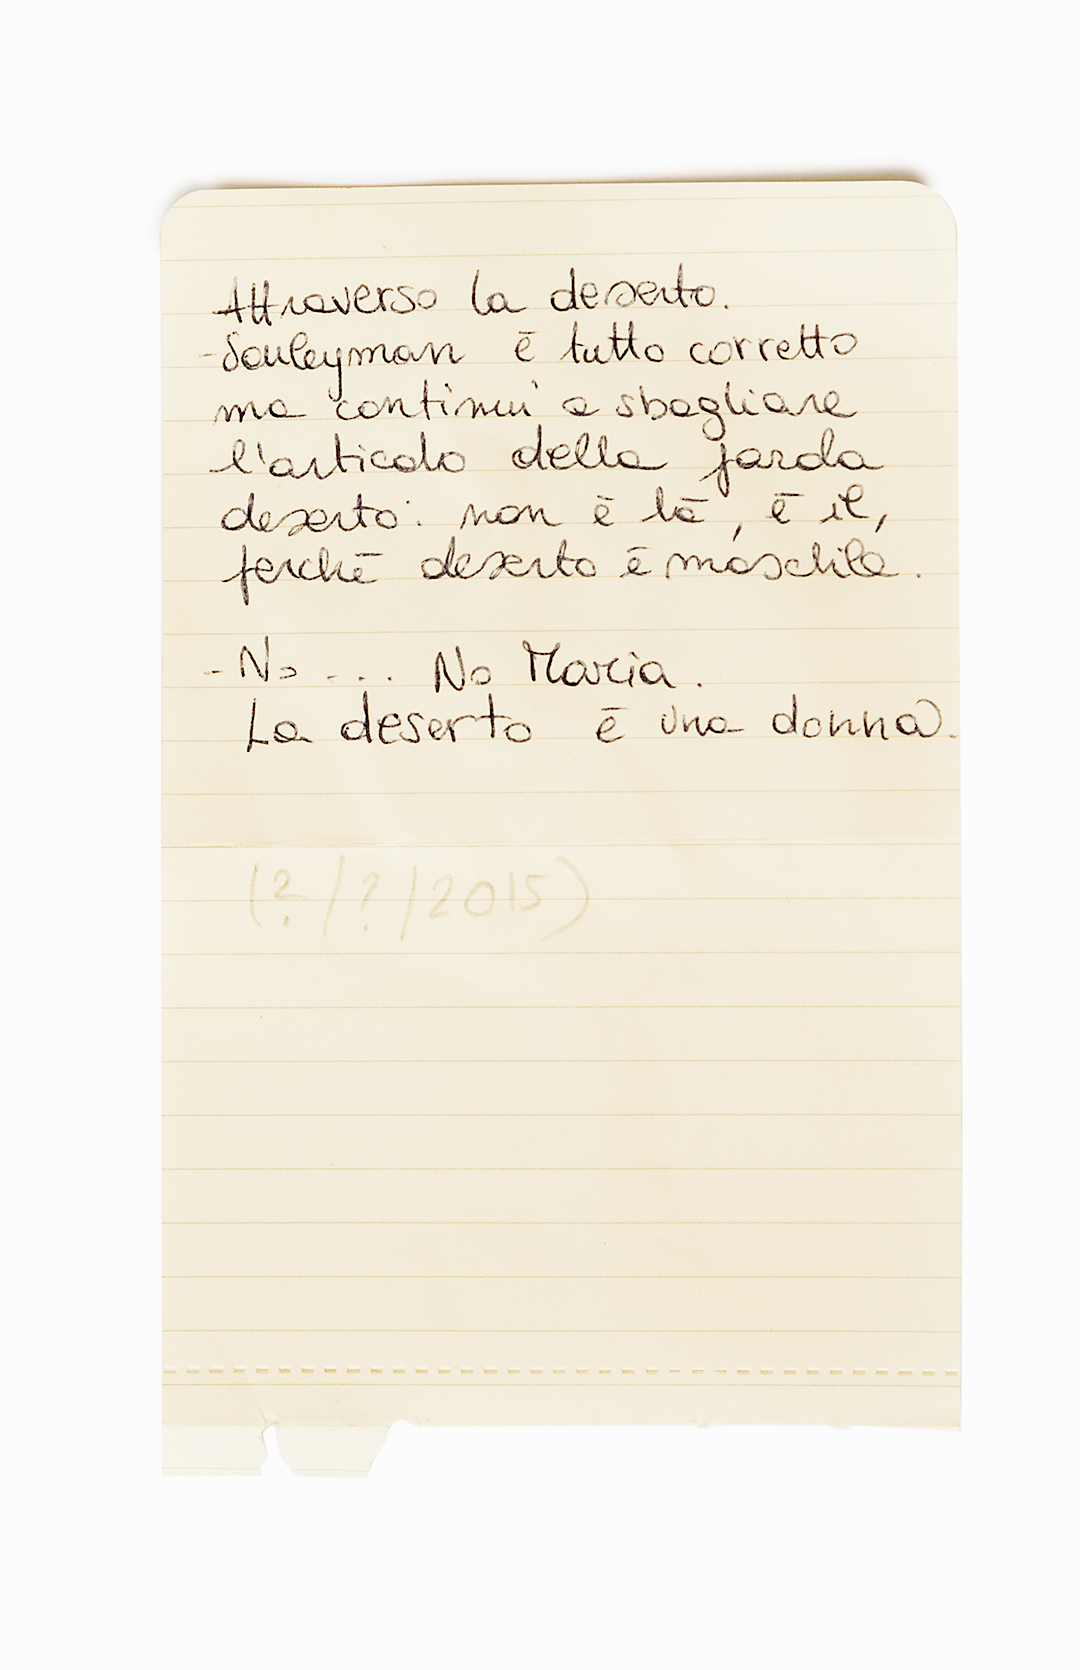 Attraverso la deserto.
- Souleyman è tutto corretto
ma continui a sbagliare
l'articolo della parola
deserto: non è la, è il,
perchè deserto è maschile.
- No ... No Maria.
La deserto è una donna.
(?/?/2015)